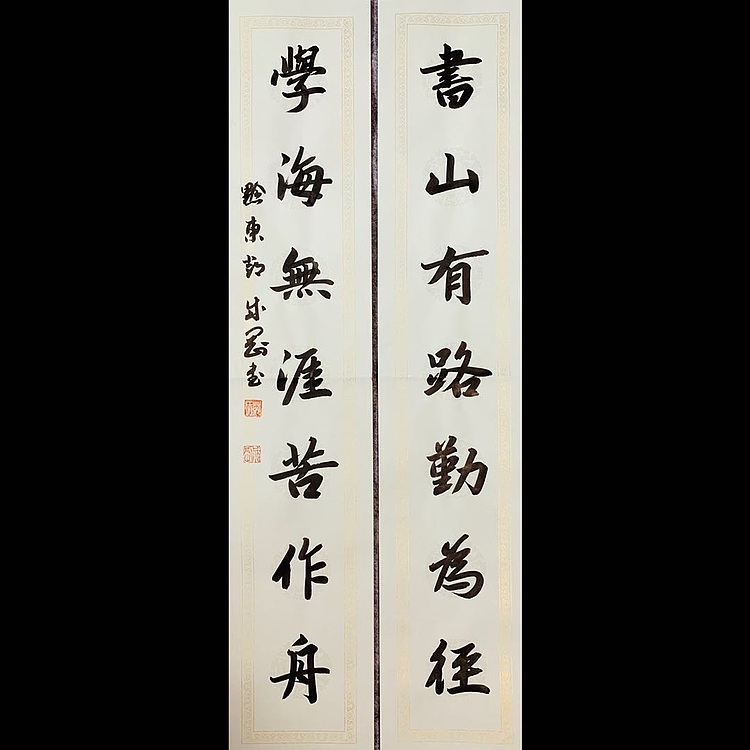 書山有路勤為徑
學海無涯苦作舟
黔東彭成剛書